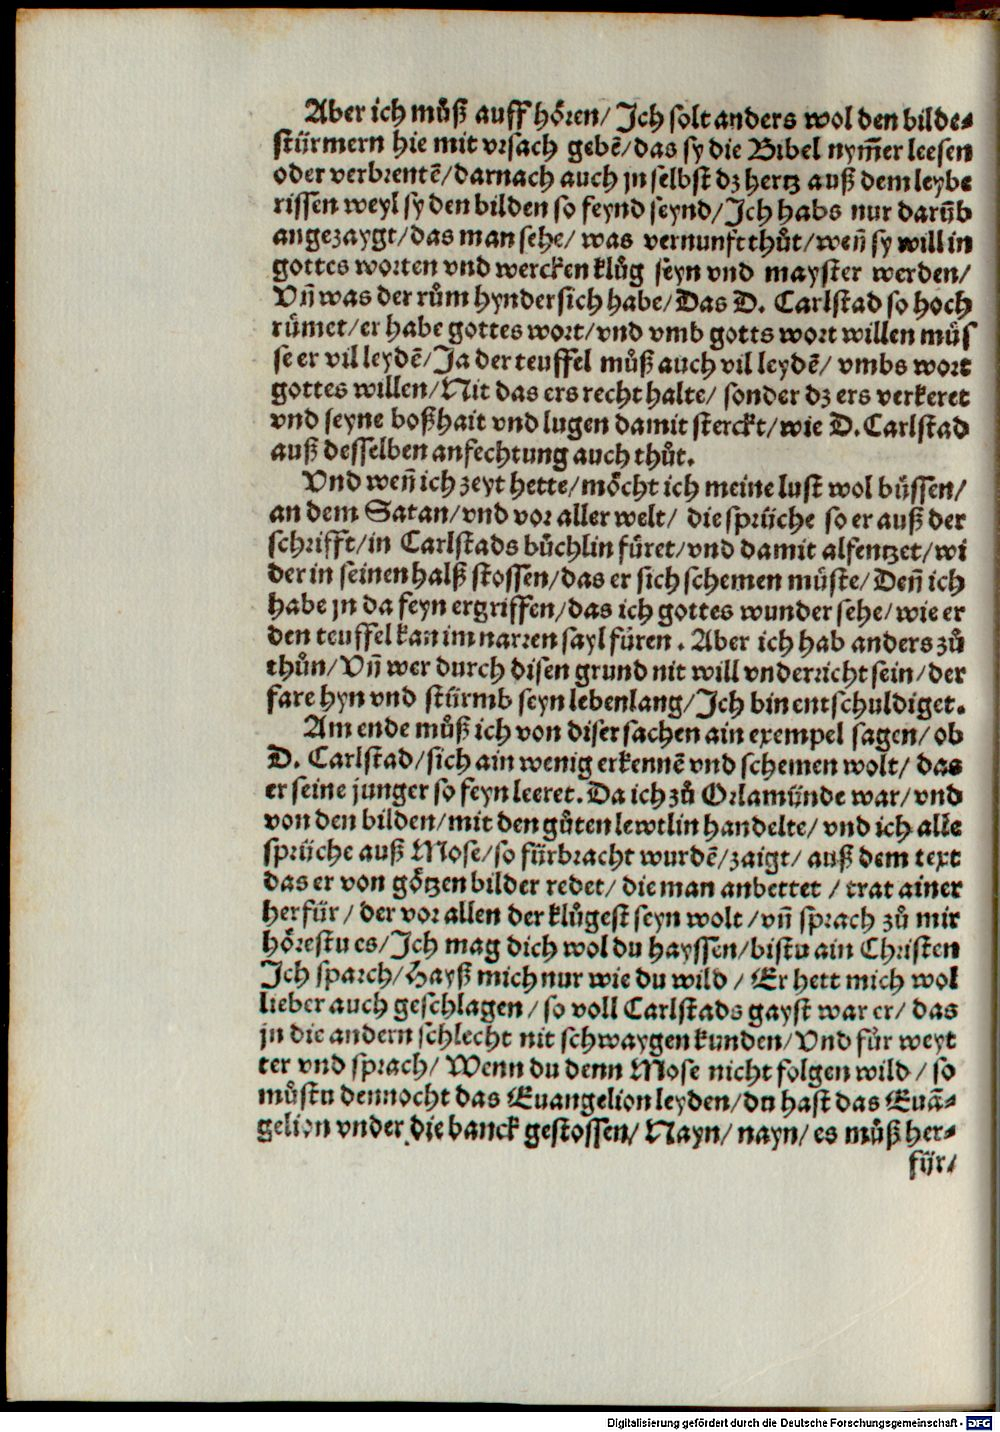 Aber ich muͤß auff hoͤren/ Ich solt anders wol den bilde⸗
stürmern hie mit vrsach gebē/das sy die Bibel nym̃er leesen
oder verbrentē/darnach auch jn selbst dz hertz auß dem leybe
rissen weyl sy den bilden so feynd seynd/Ich habs nur darüb
angezaygt/das man sehe/ was vernunfft thuͦt/weñ sy will in
gottes worten vnd wercken kluͦg seyn vnd mayster werden/
Vñ was der ruͦm hyndersich habe/Das D. Carlstad so hoch
ruͤmet/er habe gottes wort/vnd vmb gotts wort willen muͤs
se er vil leydē/Ja der teuffel muͦß auch vil leydē/ vmbs wort
gottes willen/Nit das ers recht halte/ sonder dz ers verkeret
vnd seyne boßhait vnd lugen damit sterckt/wie D.Carlstad
auß desselben anfechtung auch thuͦt.
Vnd weñ ich zeyt hette/moͤcht ich meine lust wol buͤssen/
an dem Satan/vnd vor aller welt/ die sprüche so er auß der
schrifft/in Carlstads buͤchlin fuͤret/vnd damit alfentzet/wi
der in seinen halß stossen/das er sich schemen muͤste/Deñ ich
habe jn da feyn ergriffen/das ich gottes wunder sehe/wie er
den teuffel kan im narren sayl fuͤren. Aber ich hab anders zuͦ
thuͦn/Vñ wer durch disen grund nit will vnderricht sein/der
fare hyn vnd stürmb seyn lebenlang/Ich bin entschuldiget.
Am ende muͦß ich von diser sachen ain exempel sagen/ ob
D. Carlstad/sich ain wenig erkennē vnd schemen wolt/ das
er seine junger so feyn leeret. Da ich zuͦ Orlamünde war/vnd
von den bilden/mit den guͦten lewtlin handelte/ vnd ich alle
sprüche auß Mose/so fürbracht wurdē/zaigt/ auß dem text
das er von goͤtzen bilder redet/ die man anbettet / trat ainer
herfür/ der vor allen der kluͦgest seyn wolt/vñ sprach zuͦ mir
hoͤrestu es/Ich mag dich wol du hayssen/bistu ain Christen
Ich sparch/Hayß mich nur wie du wild / Er hett mich wol
lieber auch geschlagen/ so voll Carlstads gayst war er/ das
jn die andern schlecht nit schwaygen kunden/Vnd fuͦr weyt
ter vnd sprach/ Wenn du denn Mose nicht folgen wild / so
muͦstu dennocht das Euangelion leyden/du hast das Euā⸗
gelion vnder die banck gestossen/ Nayn/ nayn/ es muͦß her⸗
für/
Digitalisierung gefördert durch die Deutsche Forschungsgemeinschaft - DFG